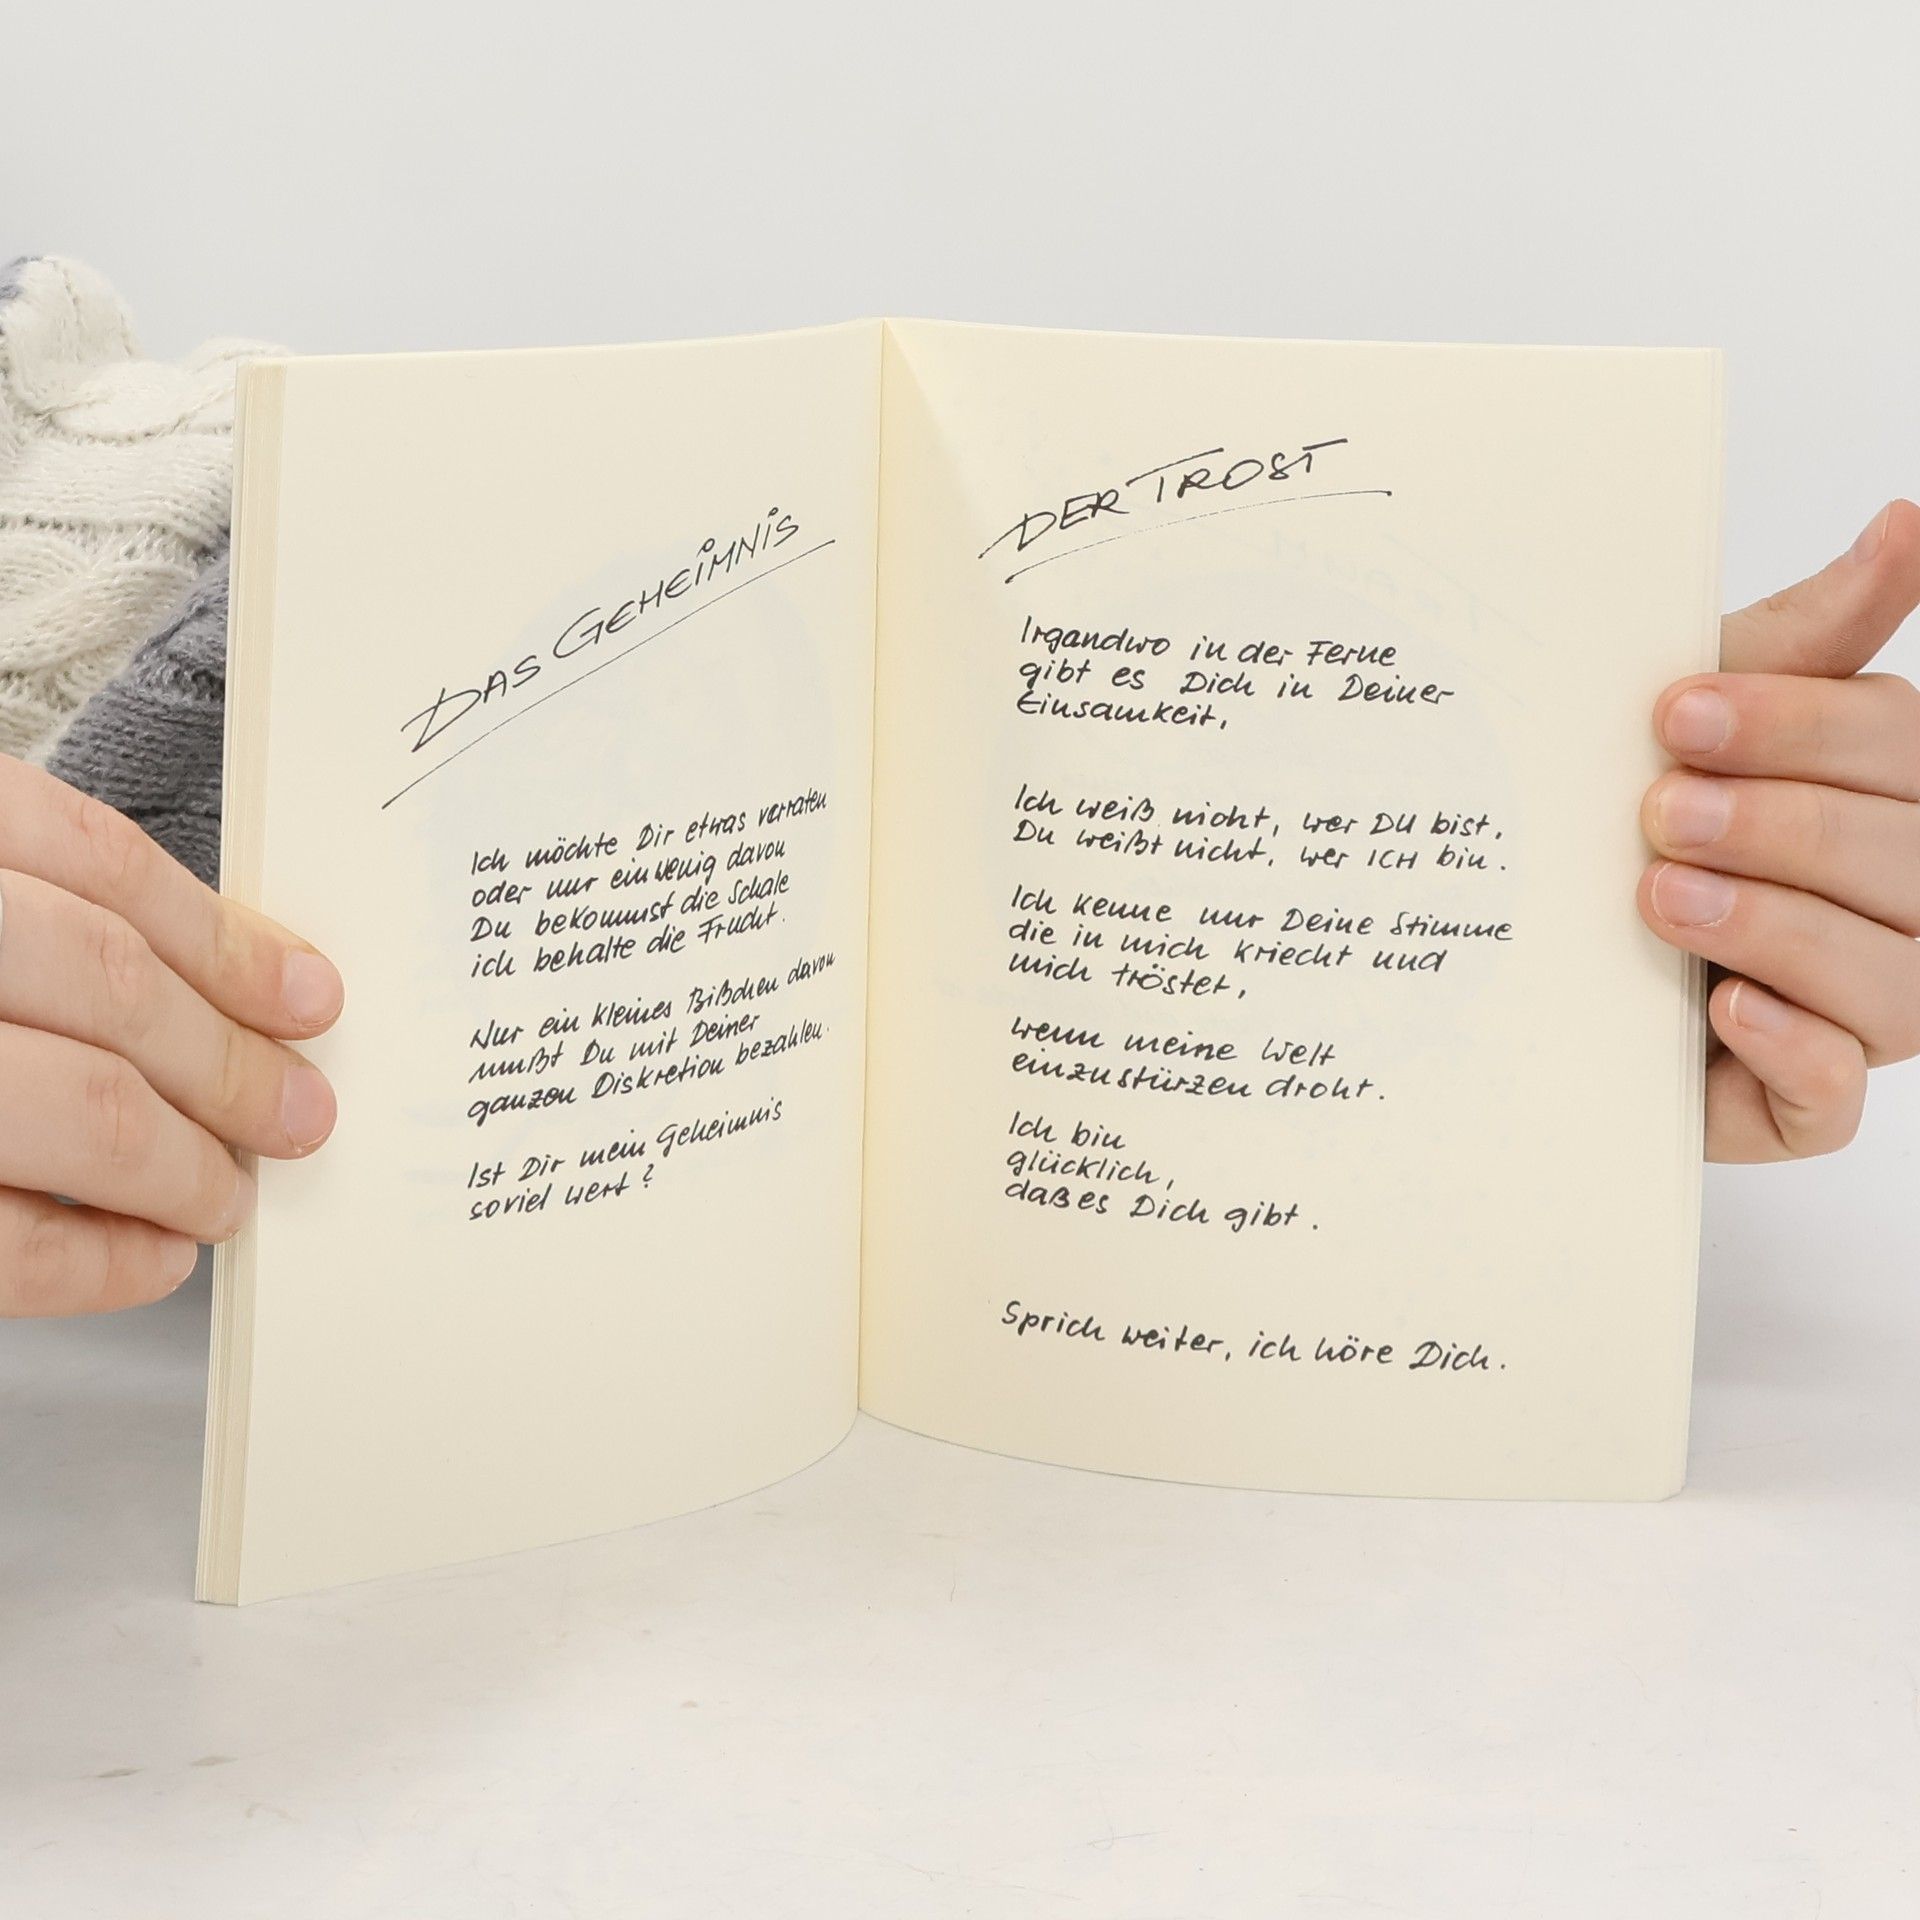 DAS GEHEIMNIS
Ich möchte Dir etwas verraten
oder nur ein wenig davon
Du bekommst die Schale
ich behalte die Frucht.
Nur ein kleines Bißchen davon
mußt Du mit Deiner
ganzen Diskretion bezahlen.
Ist Dir mein Geheimnis
soviel wert?
DER TROST
Irgandwo in der Ferne
gibt es Dich in Deiner
Einsamkeit,
Ich weiß nicht, wer DU bist,
Du weißt nicht, wer ICH bin.
Ich kenne nur Deine Stimme
die in mich kriecht und
mich tröstet,
wenn meine Welt
einzustürzen droht.
Ich bin
glücklich,
daß es Dich gibt.
Sprich weiter, ich höre Dich.